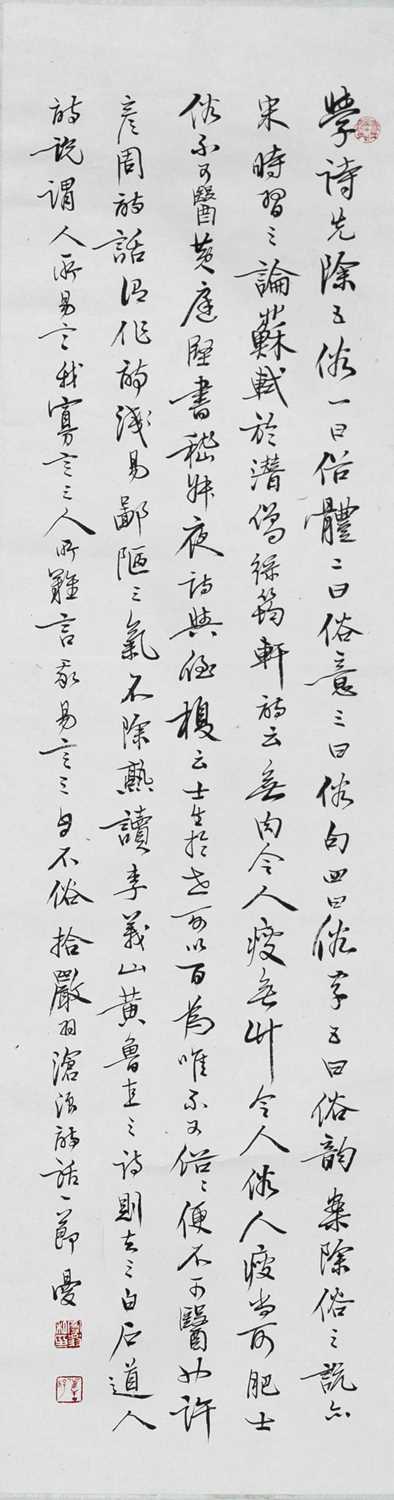 學詩先除五俗一曰俗體二曰俗意三曰俗句四曰俗字五曰俗韵案除俗之説亦
宋時習之論蘇軾於潛僧緑筠軒詩云無肉令人瘦無竹令人俗人瘦尚可肥士
俗不可醫黄庭堅書嵇叔夜詩與侄榎云士生於世可以百為唯不可俗俗便不可醫也許
彦周詩話謂作詩淺易鄙陋之氣不除熟讀李義山黄魯直之詩則去之白石道人
詩説謂人所易言我寡言之人所難言我易言之自不俗拾嚴羽滄浪詩話一節